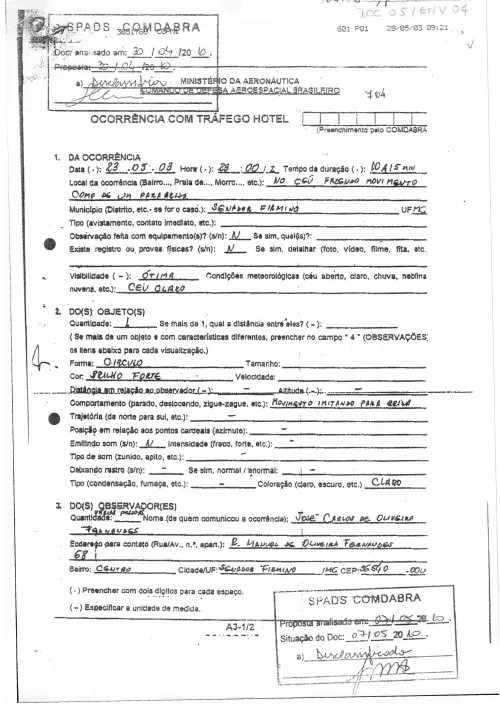 DOC 05/ENV 04
SPADS COMDABRA
601 P01 28/05/03 09:21
Doc. analisado em: 30 / 04 /20 10.
Proposta: 30/04/2010.
a) Desclassificar
MINISTÉRIO DA AERONÁUTICA
COMANDO DE DEFESA AEROESPACIAL BRASILEIRO
704
OCORRÊNCIA COM TRÁFEGO HOTEL
(Preenchimento pelo COMDABRA
1. DA OCORRÊNCIA
Data ( · ): 23 . 05 . 03 Hora ( · ): 23 : 00 / Z Tempo da duração ( · ): 10 A 15 MIN
Local da ocorrência (Bairro..., Praia de..., Morro..., etc.): NO CÉU FAZENDO MOVIMENTO
COMO DE UM PARABRISA
Município (Distrito, etc.- se for o caso.): SENADOR FIRMINO UF MG
Tipo (avistamento, contato imediato, etc.):
Observação feita com equipamento(s)? (s/n): N Se sim, qual(is)?:
Existe registro ou provas físicas? (s/n): N Se sim, detalhar (foto, vídeo, filme, fita, etc.
Visibilidade ( ~ ): ÓTIMA Condições meteorológicas (céu aberto, claro, chuva, neblina
nuvens, etc.): CEU CLARO
2. DO(S) OBJETO(S)
Quantidade: 1 Se mais de 1, qual a distância entre eles? ( ~ ):
( Se mais de um objeto e com características diferentes, preencher no campo " 4 " (OBSERVAÇÕES)
os itens abaixo para cada visualização.)
Forma: CIRCULO Tamanho:
Cor: BRILHO FORTE Velocidade:
Distância em relação ao observador ( ~ ): - Altitude ( ~ ): -
Comportamento (parado, deslocando, zigue-zague, etc.): MOVIMENTO IMITANDO PARA BRISA
Trajetória (de norte para sul, etc.): -
Posição em relação aos pontos cardeais (azimute): -
Emitindo som (s/n): N intensidade (fraco, forte, etc.): -
Tipo de som (zunido, apito, etc.): -
Deixando rastro (s/n): - Se sim, normal / anormal: -
Tipo (condensação, fumaça, etc.): - Coloração (claro, escuro, etc.) CLARO
3. DO(S) OBSERVADOR(ES)
VÁRIAS PESSOAS
Quantidade: Nome (de quem comunicou a ocorrência): JOSÉ CARLOS DE OLIVEIRA
FERNANDES
Endereço para contato (Rua/Av., n.º, apart.): R. MANUEL DE OLIVEIRA FERNANDES
68
Bairro: CENTRO Cidade/UF: SENADOR FIRMINO /MG CEP: 36540 .000
( · ) Preencher com dois dígitos para cada espaço.
( ~ ) Especificar a unidade de medida.
A3-1/2
SPADS COMDABRA
Proposta analisada em: 07/ 05 20 10.
Situação do Doc: 07/ 05 20 10.
a) Desclassificado